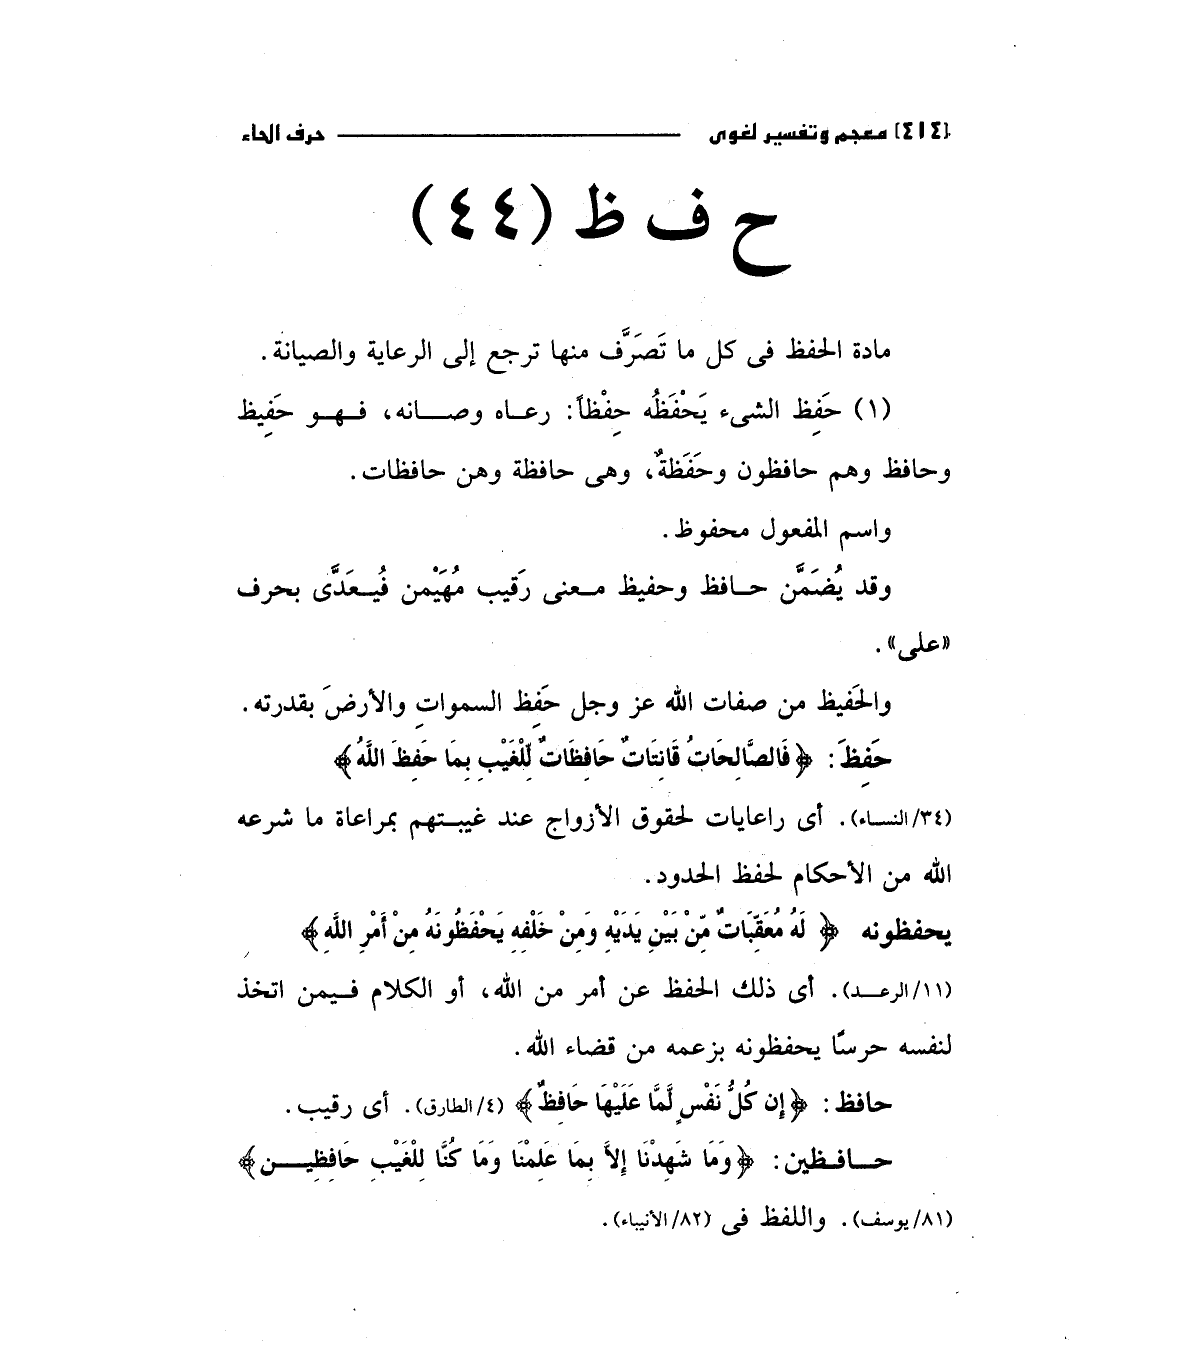 [٤١٤] معجم وتفسير لغوى حرف الحاء
ح ف ظ (٤٤)
مادة الحفظ فى كل ما تَصَرَّف منها ترجع إلى الرعاية والصيانة.
(١) حَفِظ الشىء يَحْفَظُه حِفْظاً: رعاه وصانه، فهو حَفِيظ
وحافظ وهم حافظون وحَفَظةٌ، وهى حافظة وهن حافظات.
واسم المفعول محفوظ.
وقد يُضَمَّن حافظ وحفيظ معنى رَقيب مُهَيْمن فُيعَدَّى بحرف
«على».
والحَفيظ من صفات الله عز وجل حَفِظ السمواتِ والأرضَ بقدرته.
حَفِظَ: ﴿فَالصَّالِحَاتُ قَانِتَاتٌ حَافِظَاتٌ لِّلْغَيْبِ بِمَا حَفِظَ اللَّهُ﴾
(٣٤/النساء). أى راعايات لحقوق الأزواج عند غيبتهم بمراعاة ما شرعه
الله من الأحكام لحفظ الحدود.
يحفظونه ﴿لَهُ مُعَقِّبَاتٌ مِّنْ بَيْنِ يَدَيْهِ وَمِنْ خَلْفِهِ يَحْفَظُونَهُ مِنْ أَمْرِ اللَّهِ﴾
(١١/الرعد). أى ذلك الحفظ عن أمر من الله، أو الكلام فيمن اتخذ
لنفسه حرسًا يحفظونه بزعمه من قضاء الله.
حافظ: ﴿إِن كُلُّ نَفْسٍ لَّمَّا عَلَيْهَا حَافِظٌ﴾ (٤/الطارق). أى رقيب.
حافظين: ﴿وَمَا شَهِدْنَا إِلاَّ بِمَا عَلِمْنَا وَمَا كُنَّا لِلْغَيْبِ حَافِظِين﴾
(٨١/يوسف). واللفظ فى (٨٢/الأنبياء).